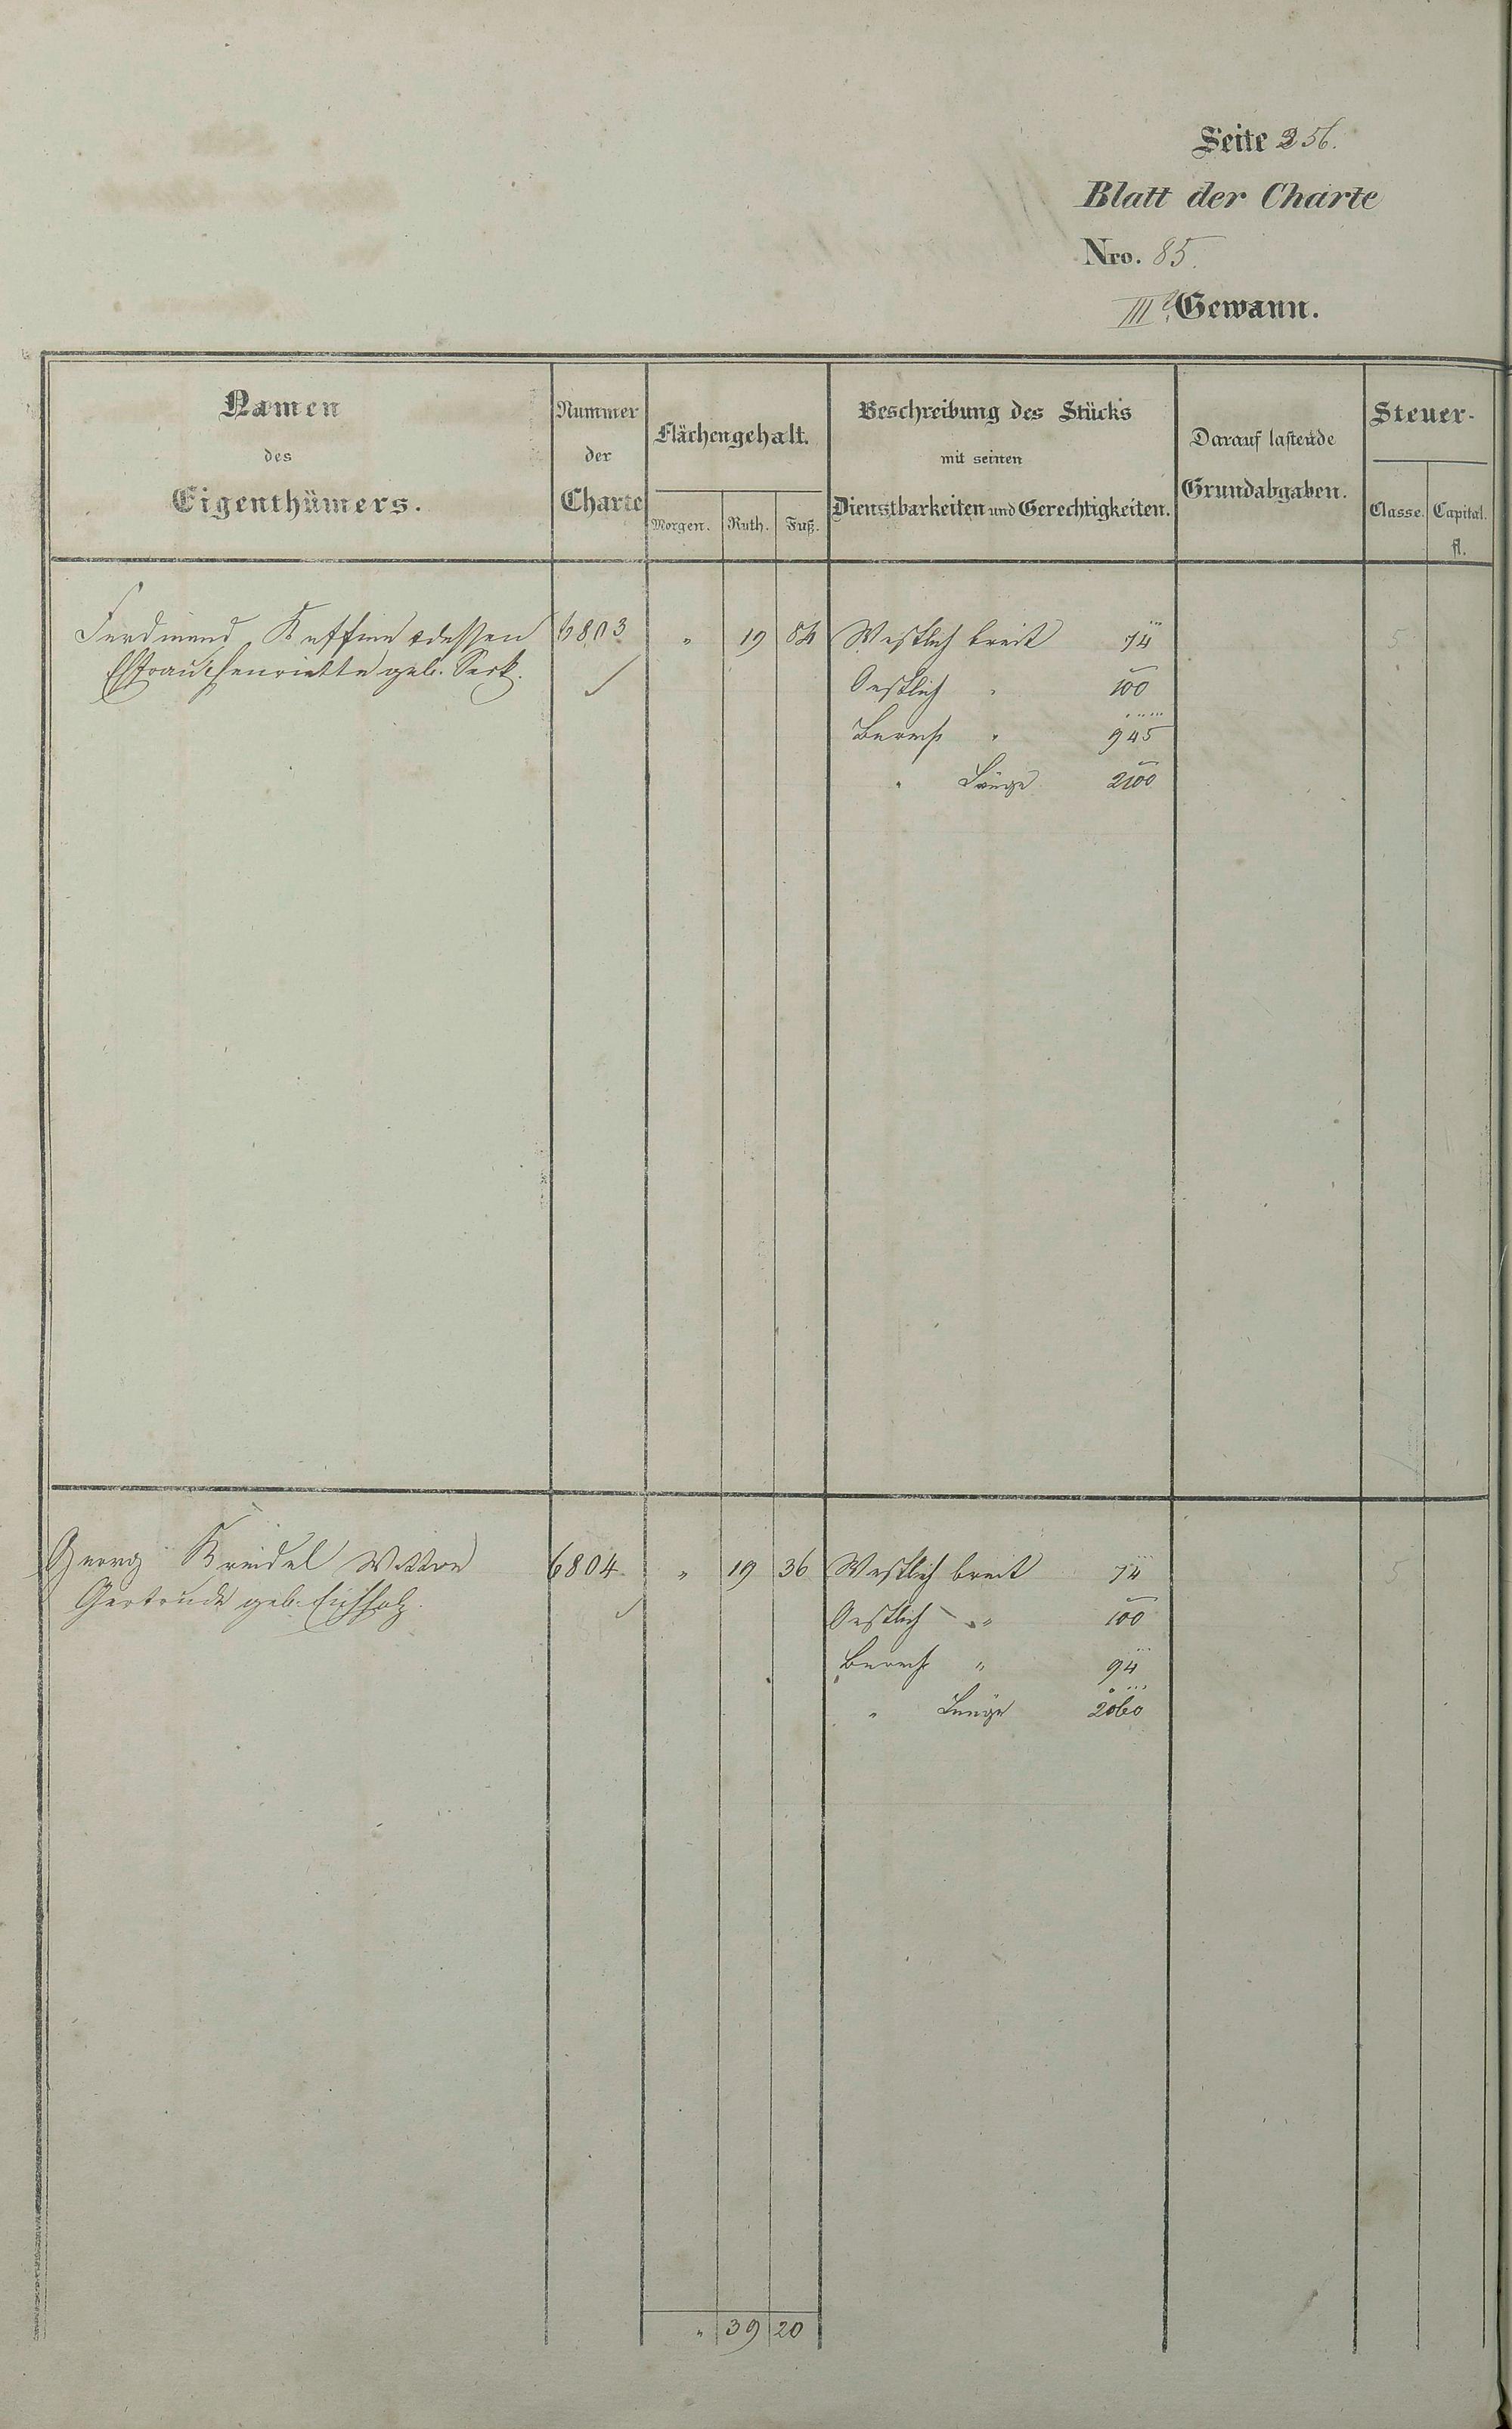 Seite 256.
Blatt der Charte
Nro. 85.
III Gewann.
Namen des Eigenthümers.
Nummer der Charte
Flächengehalt.
Morgen. Ruth. Fuß.
Beschreibung des Stücks mit seinen Dienstbarkeiten und Gerechtigkeiten.
Darauf lastende Grundabgaben.
Steuer-
Classe. Capital.
fl.
Ferdinand dessen 6803 " 19 84 Westlich breit 74 5
Ehefrau Henriette geb. Sark. Oestlich " 100
Berech " 945
" Länge 2100
Georg Kreidel Wittwe 6804. " 19 36 Westlich breit 74 5
Gertrude geb. Eichholz. Oestlich " 100
Berech " 94
" Länge 2060
" 39 20